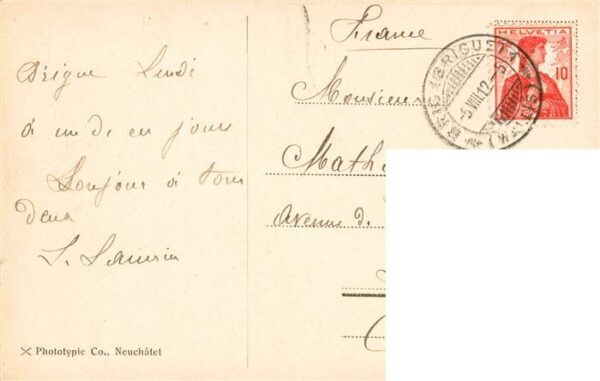 Brigue Lundi
à un de ces jours
Bonjour à tous
deux
France
Monsieur
Math
Avenue d.
HELVETIA
10
BRIG (BRIGUE)
-5.VIII.12.-5
(WALLIS)
Phototypie Co., Neuchâtel